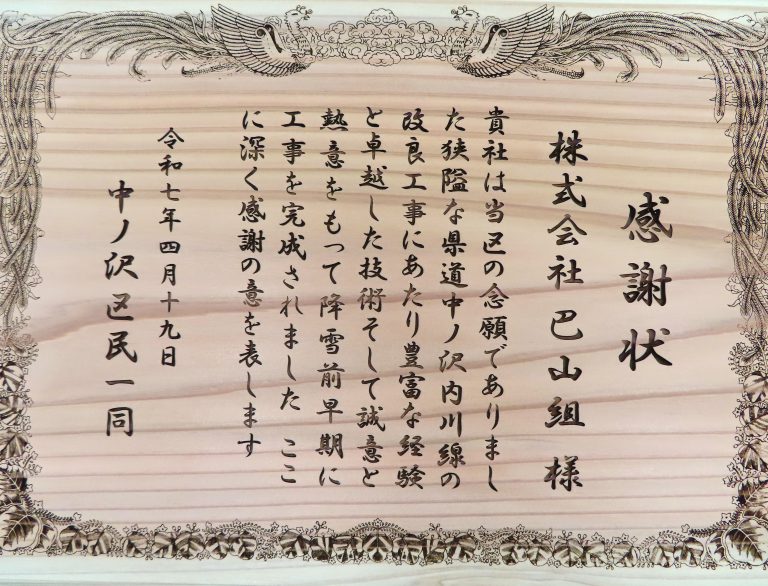 感謝状
株式会社巴山組 様
貴社は当区の念願でありまし
た狭隘な県道中ノ沢内川線の
改良工事にあたり豊富な経験
と卓越した技術そして誠意と
熱意をもって降雪前早期に
工事を完成されました ここ
に深く感謝の意を表します
令和七年四月十九日
中ノ沢区民一同